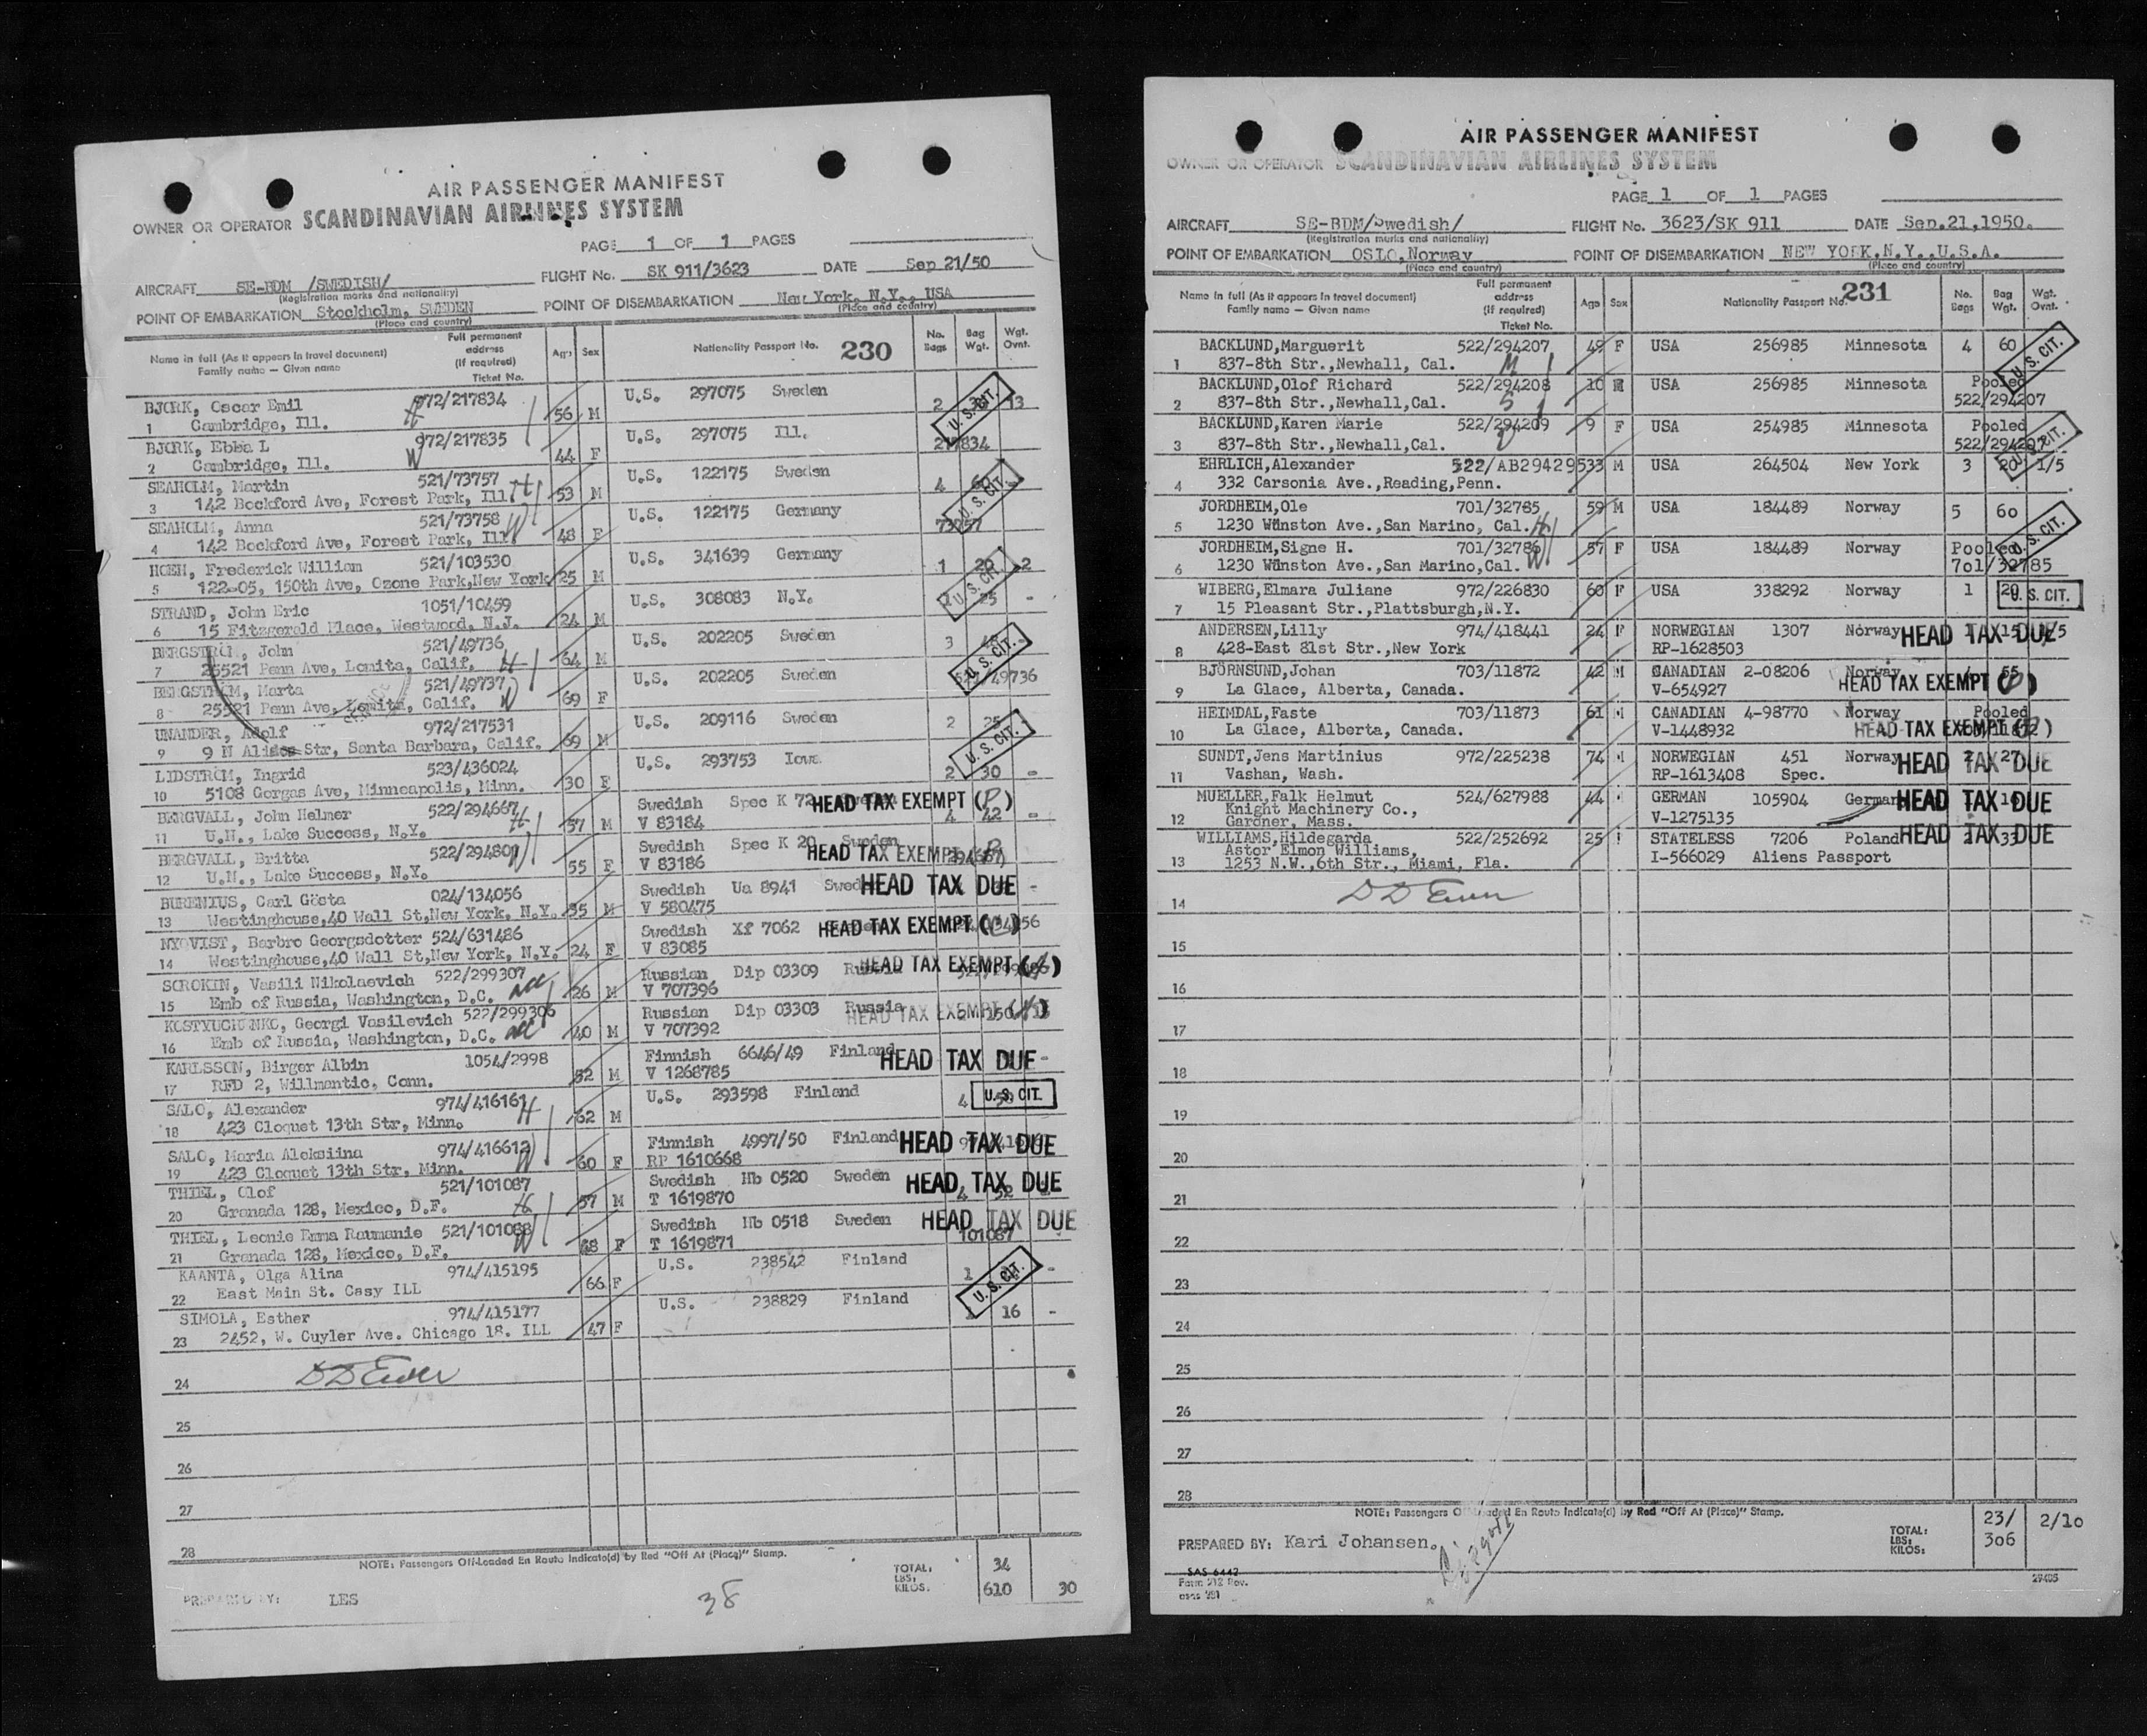 AIR PASSENGER MANIFEST
OWNER OR OPERATOR SCANDINAVIAN AIRLINES SYSTEM
PAGE 1 OF 1 PAGES
AIRCRAFT SE-BDM /SWEDISH/ FLIGHT No. SK 911/3623 DATE Sep 21/50
(Registration marks and nationality)
POINT OF EMBARKATION Stockholm, SWEDEN POINT OF DISEMBARKATION New York, N.Y., USA
(Place and country) (Place and country)
Name in full (As it appears in travel document) Family name — Given name Full permanent address (If required) Ticket No. Age Sex Nationality Passport No. 230 No. Bags Bag Wgt. Wgt. Ovnt.
BJORK, Oscar Emil 972/217834 56 M U.S. 297075 Sweden 2 13 U.S. CIT.
1 Cambridge, Ill. H
BJORK, Ebba L 972/217835 44 F U.S. 297075 Ill. 217834
2 Cambridge, Ill. W
SEAHOLM, Martin 521/73757 53 M U.S. 122175 Sweden 4 U.S. CIT.
3 142 Bockford Ave, Forest Park, Ill H
SEAHOLM, Anna 521/73758 48 F U.S. 122175 Germany 73757
4 142 Bockford Ave, Forest Park, Ill. W
HOEH, Frederick William 521/103530 25 M U.S. 341639 Germany 1 20 2 U.S. CIT.
5 122-05, 150th Ave, Ozone Park,New York
STRAND, John Eric 1051/10459 24 M U.S. 308083 N.Y. 25 -
6 15 Fitzgerald Place, Westwood, N.J.
BERGSTROM, John 521/49736 64 M U.S. 202205 Sweden 3 U.S. CIT.
7 25521 Penn Ave, Lomita, Calif. H
BERGSTROM, Marta 521/49737 69 F U.S. 202205 Sweden 521/49736
8 25521 Penn Ave, Lomita, Calif. W
UNANDER, Adolf 972/217531 69 M U.S. 209116 Sweden 2 25 U.S. CIT.
9 9 N Alisos Str, Santa Barbara, Calif.
LIDSTROM, Ingrid 523/436024 30 F U.S. 293753 Iowa 2 30 -
10 5108 Gorgas Ave, Minneapolis, Minn.
BERGVALL, John Helmer 522/294667 57 M Swedish Spec K 72 HEAD TAX EXEMPT (P)
11 U.N., Lake Success, N.Y. H V 83184 4 42 -
BERGVALL, Britta 522/294801 55 F Swedish Spec K 20 Sweden
12 U.N., Lake Success, N.Y. W V 83186 HEAD TAX EXEMPT
BURENIUS, Carl Gösta 024/134056 35 M Swedish Ua 8941 HEAD TAX DUE -
13 Westinghouse,40 Wall St,New York, N.Y. V 580475
NYQVIST, Barbro Georgsdotter 524/631486 24 F Swedish Xf 7062 HEAD TAX EXEMPT
14 Westinghouse,40 Wall St,New York, N.Y. V 83085
SOROKIN, Vasili Nikolaevich 522/299307 26 M Russian Dip 03309 Russia HEAD TAX EXEMPT
15 Emb of Russia, Washington, D.C. V 707396
KOSTYUCHENKO, Georgi Vasilevich 522/299306 40 M Russian Dip 03303 Russia HEAD TAX EXEMPT
16 Emb of Russia, Washington, D.C. V 707392
KARLSSON, Birger Albin 1054/2998 52 M Finnish 6646/49 Finland HEAD TAX DUE -
17 RFD 2, Willmantic, Conn. V 1268785
SALO, Alexander 974/416161 62 M U.S. 293598 Finland 4 U.S. CIT.
18 423 Cloquet 13th Str, Minn. H
SALO, Maria Aleksiina 974/416612 60 F Finnish 4997/50 Finland HEAD TAX DUE
19 423 Cloquet 13th Str, Minn. W RP 1610668
THIEL, Olof 521/101087 57 M Swedish Hb 0520 Sweden HEAD TAX DUE
20 Granada 128, Mexico, D.F. H T 1619870 4 52
THIEL, Leonie Emma Raumanie 521/101088 68 F Swedish Hb 0518 Sweden HEAD TAX DUE
21 Granada 128, Mexico, D.F. W T 1619871 101087
KAANTA, Olga Alina 974/415195 66 F U.S. 238542 Finland 1 - U.S. CIT.
22 East Main St. Casy ILL
SIMOLA, Esther 974/415177 47 F U.S. 238829 Finland 16 -
23 2452, W. Cuyler Ave. Chicago 18. ILL
24
25
26
27
28
NOTE: Passengers Off-Loaded En Route Indicate(d) by Red "Off At (Place)" Stamp.
PREPARED BY: LES TOTAL: LBS: KILOS: 34 610 30
38
AIR PASSENGER MANIFEST
OWNER OR OPERATOR SCANDINAVIAN AIRLINES SYSTEM
PAGE 1 OF 1 PAGES
AIRCRAFT SE-BDM/Swedish/ FLIGHT No. 3623/SK 911 DATE Sep.21,1950.
(Registration marks and nationality)
POINT OF EMBARKATION OSLO,Norway POINT OF DISEMBARKATION NEW YORK,N.Y.,U.S.A.
(Place and country) (Place and country)
Name in full (As it appears in travel document) Family name — Given name Full permanent address (If required) Ticket No. Age Sex Nationality Passport No. 231 No. Bags Bag Wgt. Wgt. Ovnt.
BACKLUND,Marguerit 522/294207 49 F USA 256985 Minnesota 4 60 U.S. CIT.
1 837-8th Str.,Newhall, Cal. M
BACKLUND,Olof Richard 522/294208 10 M USA 256985 Minnesota Pooled
2 837-8th Str.,Newhall,Cal. S 522/294207
BACKLUND,Karen Marie 522/294209 9 F USA 254985 Minnesota Pooled
3 837-8th Str.,Newhall,Cal. D 522/294207 U.S. CIT.
EHRLICH,Alexander 522/AB294295 33 M USA 264504 New York 3 20 1/5
4 332 Carsonia Ave.,Reading,Penn.
JORDHEIM,Ole 701/32785 59 M USA 184489 Norway 5 60
5 1230 Winston Ave.,San Marino, Cal. H U.S. CIT.
JORDHEIM,Signe H. 701/32786 57 F USA 184489 Norway Pooled
6 1230 Winston Ave.,San Marino,Cal. W 701/32785
WIBERG,Elmara Juliane 972/226830 60 F USA 338292 Norway 1 20 U.S. CIT.
7 15 Pleasant Str.,Plattsburgh,N.Y.
ANDERSEN,Lilly 974/418441 24 F NORWEGIAN 1307 Norway HEAD TAX DUE
8 428-East 81st Str.,New York RP-1628503
BJÖRNSUND,Johan 703/11872 42 M CANADIAN 2-08206 Norway 55
9 La Glace, Alberta, Canada. V-654927 HEAD TAX EXEMPT
HEIMDAL,Faste 703/11873 61 M CANADIAN 4-98770 Norway Pooled
10 La Glace, Alberta, Canada. V-1448932 HEAD TAX EXEMPT
SUNDT,Jens Martinius 972/225238 74 M NORWEGIAN 451 Norway 2 27 HEAD TAX DUE
11 Vashan, Wash. RP-1613408 Spec.
MUELLER,Falk Helmut 524/627988 44 GERMAN 105904 German HEAD TAX DUE
Knight Machinery Co.,
12 Gardner, Mass. V-1275135
WILLIAMS,Hildegarda 522/252692 25 STATELESS 7206 Poland 2 33 HEAD TAX DUE
Astor Elmon Williams,
13 1253 N.W.,6th Str., Miami, Fla. I-566029 Aliens Passport
14
15
16
17
18
19
20
21
22
23
24
25
26
27
28
NOTE: Passengers Off-Loaded En Route Indicate(d) by Red "Off At (Place)" Stamp.
PREPARED BY: Kari Johansen. TOTAL: LBS: KILOS: 23/ 306 2/10
SAS 6442
Form 212 Rev.
29405